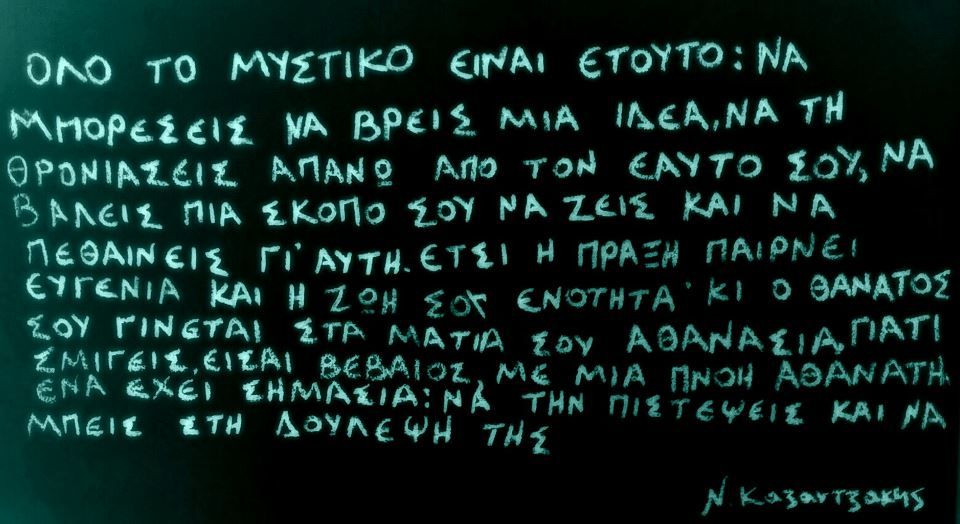 ΟΛΟ ΤΟ ΜΥΣΤΙΚΟ ΕΙΝΑΙ ΕΤΟΥΤΟ: ΝΑ
ΜΠΟΡΕΣΕΙΣ ΝΑ ΒΡΕΙΣ ΜΙΑ ΙΔΕΑ, ΝΑ ΤΗ
ΘΡΟΝΙΑΣΕΙΣ ΑΠΑΝΩ ΑΠΟ ΤΟΝ ΕΑΥΤΟ ΣΟΥ, ΝΑ
ΒΑΛΕΙΣ ΠΙΑ ΣΚΟΠΟ ΣΟΥ ΝΑ ΖΕΙΣ ΚΑΙ ΝΑ
ΠΕΘΑΙΝΕΙΣ ΓΙ' ΑΥΤΗ. ΕΤΣΙ Η ΠΡΑΞΗ ΠΑΙΡΝΕΙ
ΕΥΓΕΝΙΑ ΚΑΙ Η ΖΩΗ ΣΟΥ ΕΝΟΤΗΤΑ· ΚΙ Ο ΘΑΝΑΤΟΣ
ΣΟΥ ΓΙΝΕΤΑΙ ΣΤΑ ΜΑΤΙΑ ΣΟΥ ΑΘΑΝΑΣΙΑ, ΓΙΑΤΙ
ΣΜΙΓΕΙΣ, ΕΙΣΑΙ ΒΕΒΑΙΟΣ, ΜΕ ΜΙΑ ΠΝΟΗ ΑΘΑΝΑΤΗ.
ΕΝΑ ΕΧΕΙ ΣΗΜΑΣΙΑ: ΝΑ ΤΗΝ ΠΙΣΤΕΨΕΙΣ ΚΑΙ ΝΑ
ΜΠΕΙΣ ΣΤΗ ΔΟΥΛΕΨΗ ΤΗΣ
Ν. Καζαντζακης